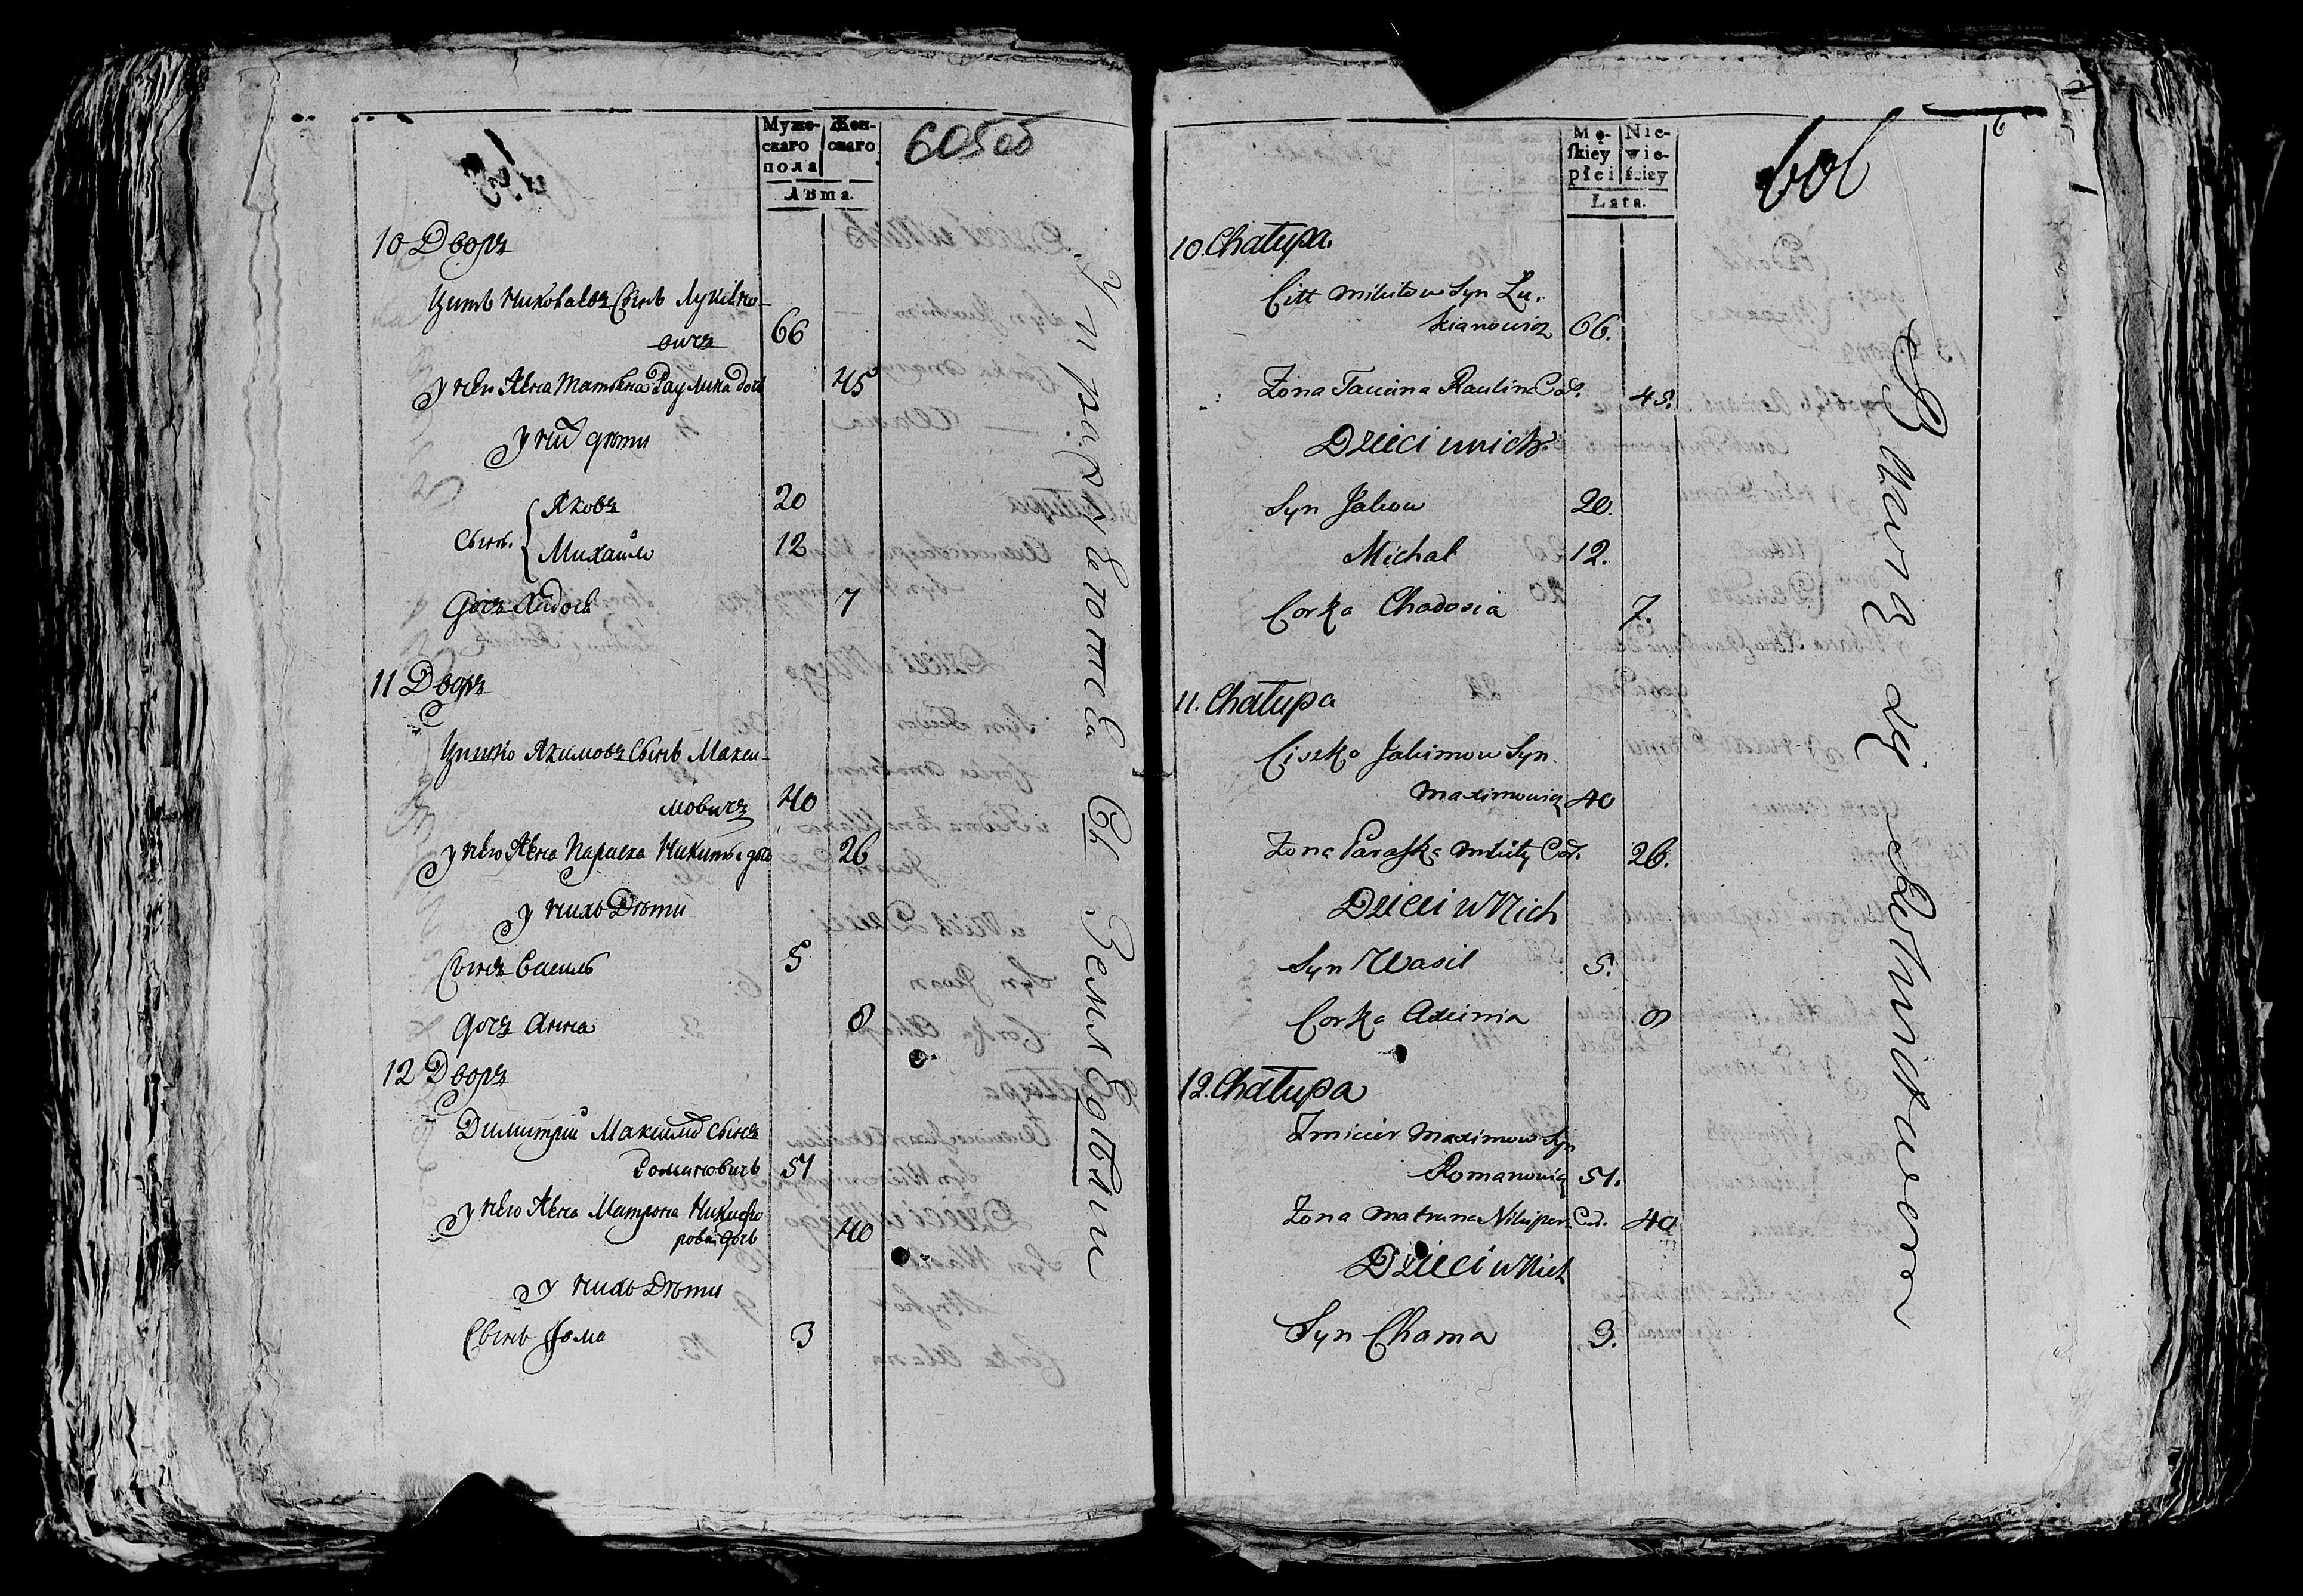 Муже-
скаго
пола
Жен-
скаго
Лѣта.
605об
10 Дворъ
Цитъ Миковаевъ Сынъ Лукіяно-
вичъ 66
у него жена Татьяна Раулина дочь 45
у нихъ дѣти
Сынъ. Яковъ 20
Михайло 12
дочь Хадося 7
11 Дворъ
Цишко Якимовъ Сынъ Макси-
мовичъ 40
у него жена Параска Микиты дочь 26
у нихъ Дѣти
Сынъ Василь 5
дочь Анна 8
12 Дворъ
Димитрій Максимов сынъ
Романовичъ 51
у него жена Матрона Никифо
рова дочь 40
у нихъ Дѣти
Сынъ Фома 3
Mę-
skiey
płci
Nie-
wie-
ściey
Lata.
606
10. Chałupa.
Citt Mikitow Syn Lu.
kianowicz 66.
Zona Tacina Raulina Cor. 45.
Dzieci u nich
Syn Jakow 20.
Michał 12.
Corka Chadosia 7.
11. Chałupa
Ciszko Jakimow Syn
Maximowicz 40
Zona Paraska Mikity Cor. 26.
Dzieci u Nich
Syn Wasil 5.
Corka Axinia 8
12. Chałupa
Zmicier Maximow Syn
Romanowicz 51.
Zona Matruna Nikiper. Cor. 40
Dzieci u Nich
Syn Chama 3.